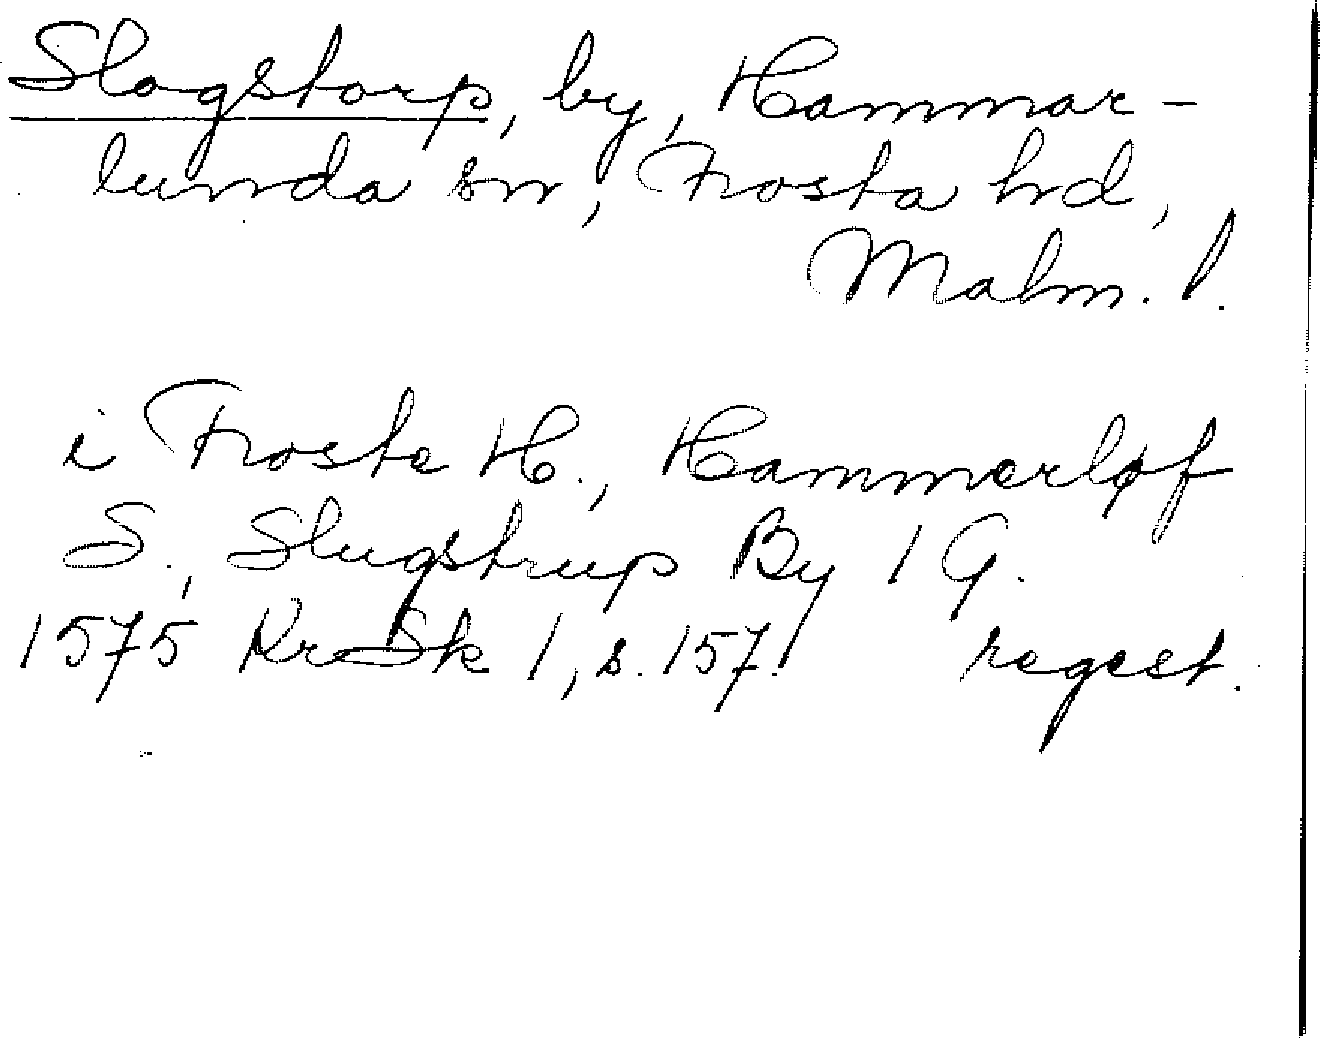 Slogstorp, by, Hammar-
lunda sn, Frosta hd,
Malm. l.
i Froste H., Hammerløf
S., Slugstrup By 1 G.
1575 KrSk 1, s. 157. regest.